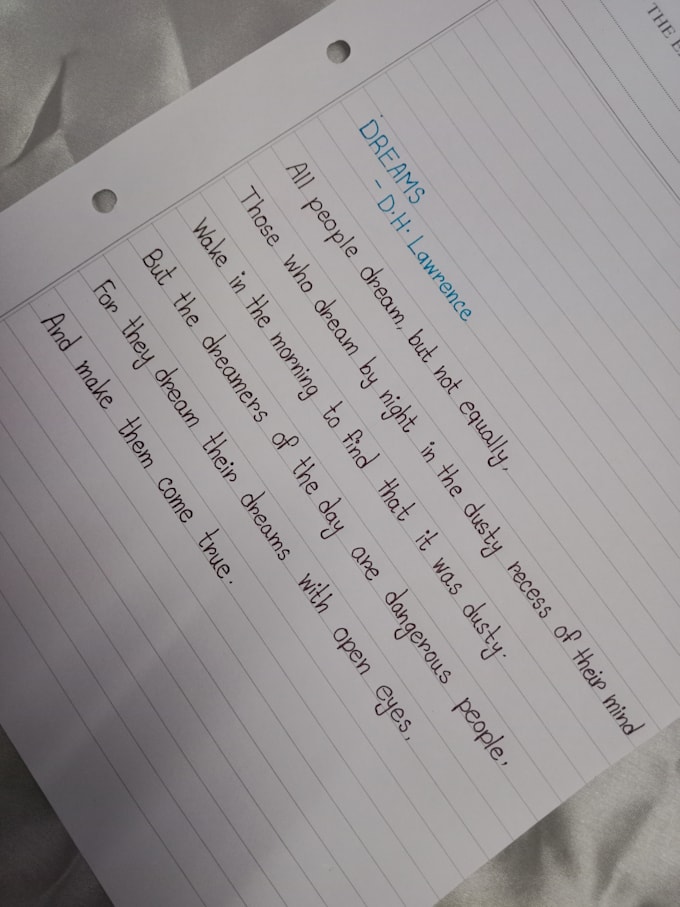 THE
DREAMS
- D.H. Lawrence
All people dream, but not equally,
Those who dream by night in the dusty recess of their mind
Wake in the morning to find that it was dusty.
But the dreamers of the day are dangerous people,
For they dream their dreams with open eyes,
And make them come true.